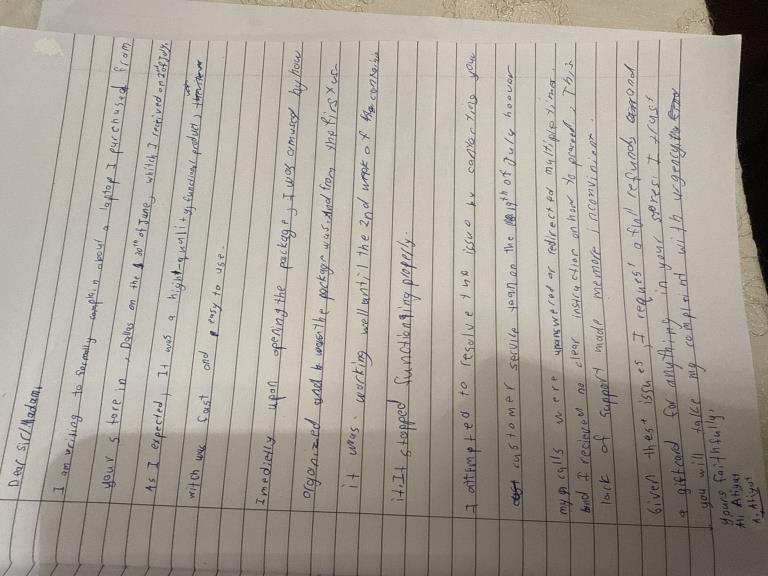 Dear Sir/Madam,
I am writing to formally complain about a laptop I purchased from
your store in, Dallas on the 30th of June, witch I received on 2nd of July.
As I expected, It was a hight-quality, functional product,
witch was fast and easy to use.
Imedietly upon opening the package, I was amused by how
organized and the package was. And from the first use
it was working well until the 2nd week of
it. It stopped functionging properly.
I attempted to resolve the issue by contacting your
customer service team on the 19th of July however
my calls were unanswered or redirected multiple times.
and I recieved no clear instruction on how to proceed. This
lack of support made me more inconvinient.
Given thest issues, I request a full refunds and
a giftcard for anything in your stores. I trust
you will take my complaint with urgency.
yours faithfully,
Ali Atiyat
A. Atiyat